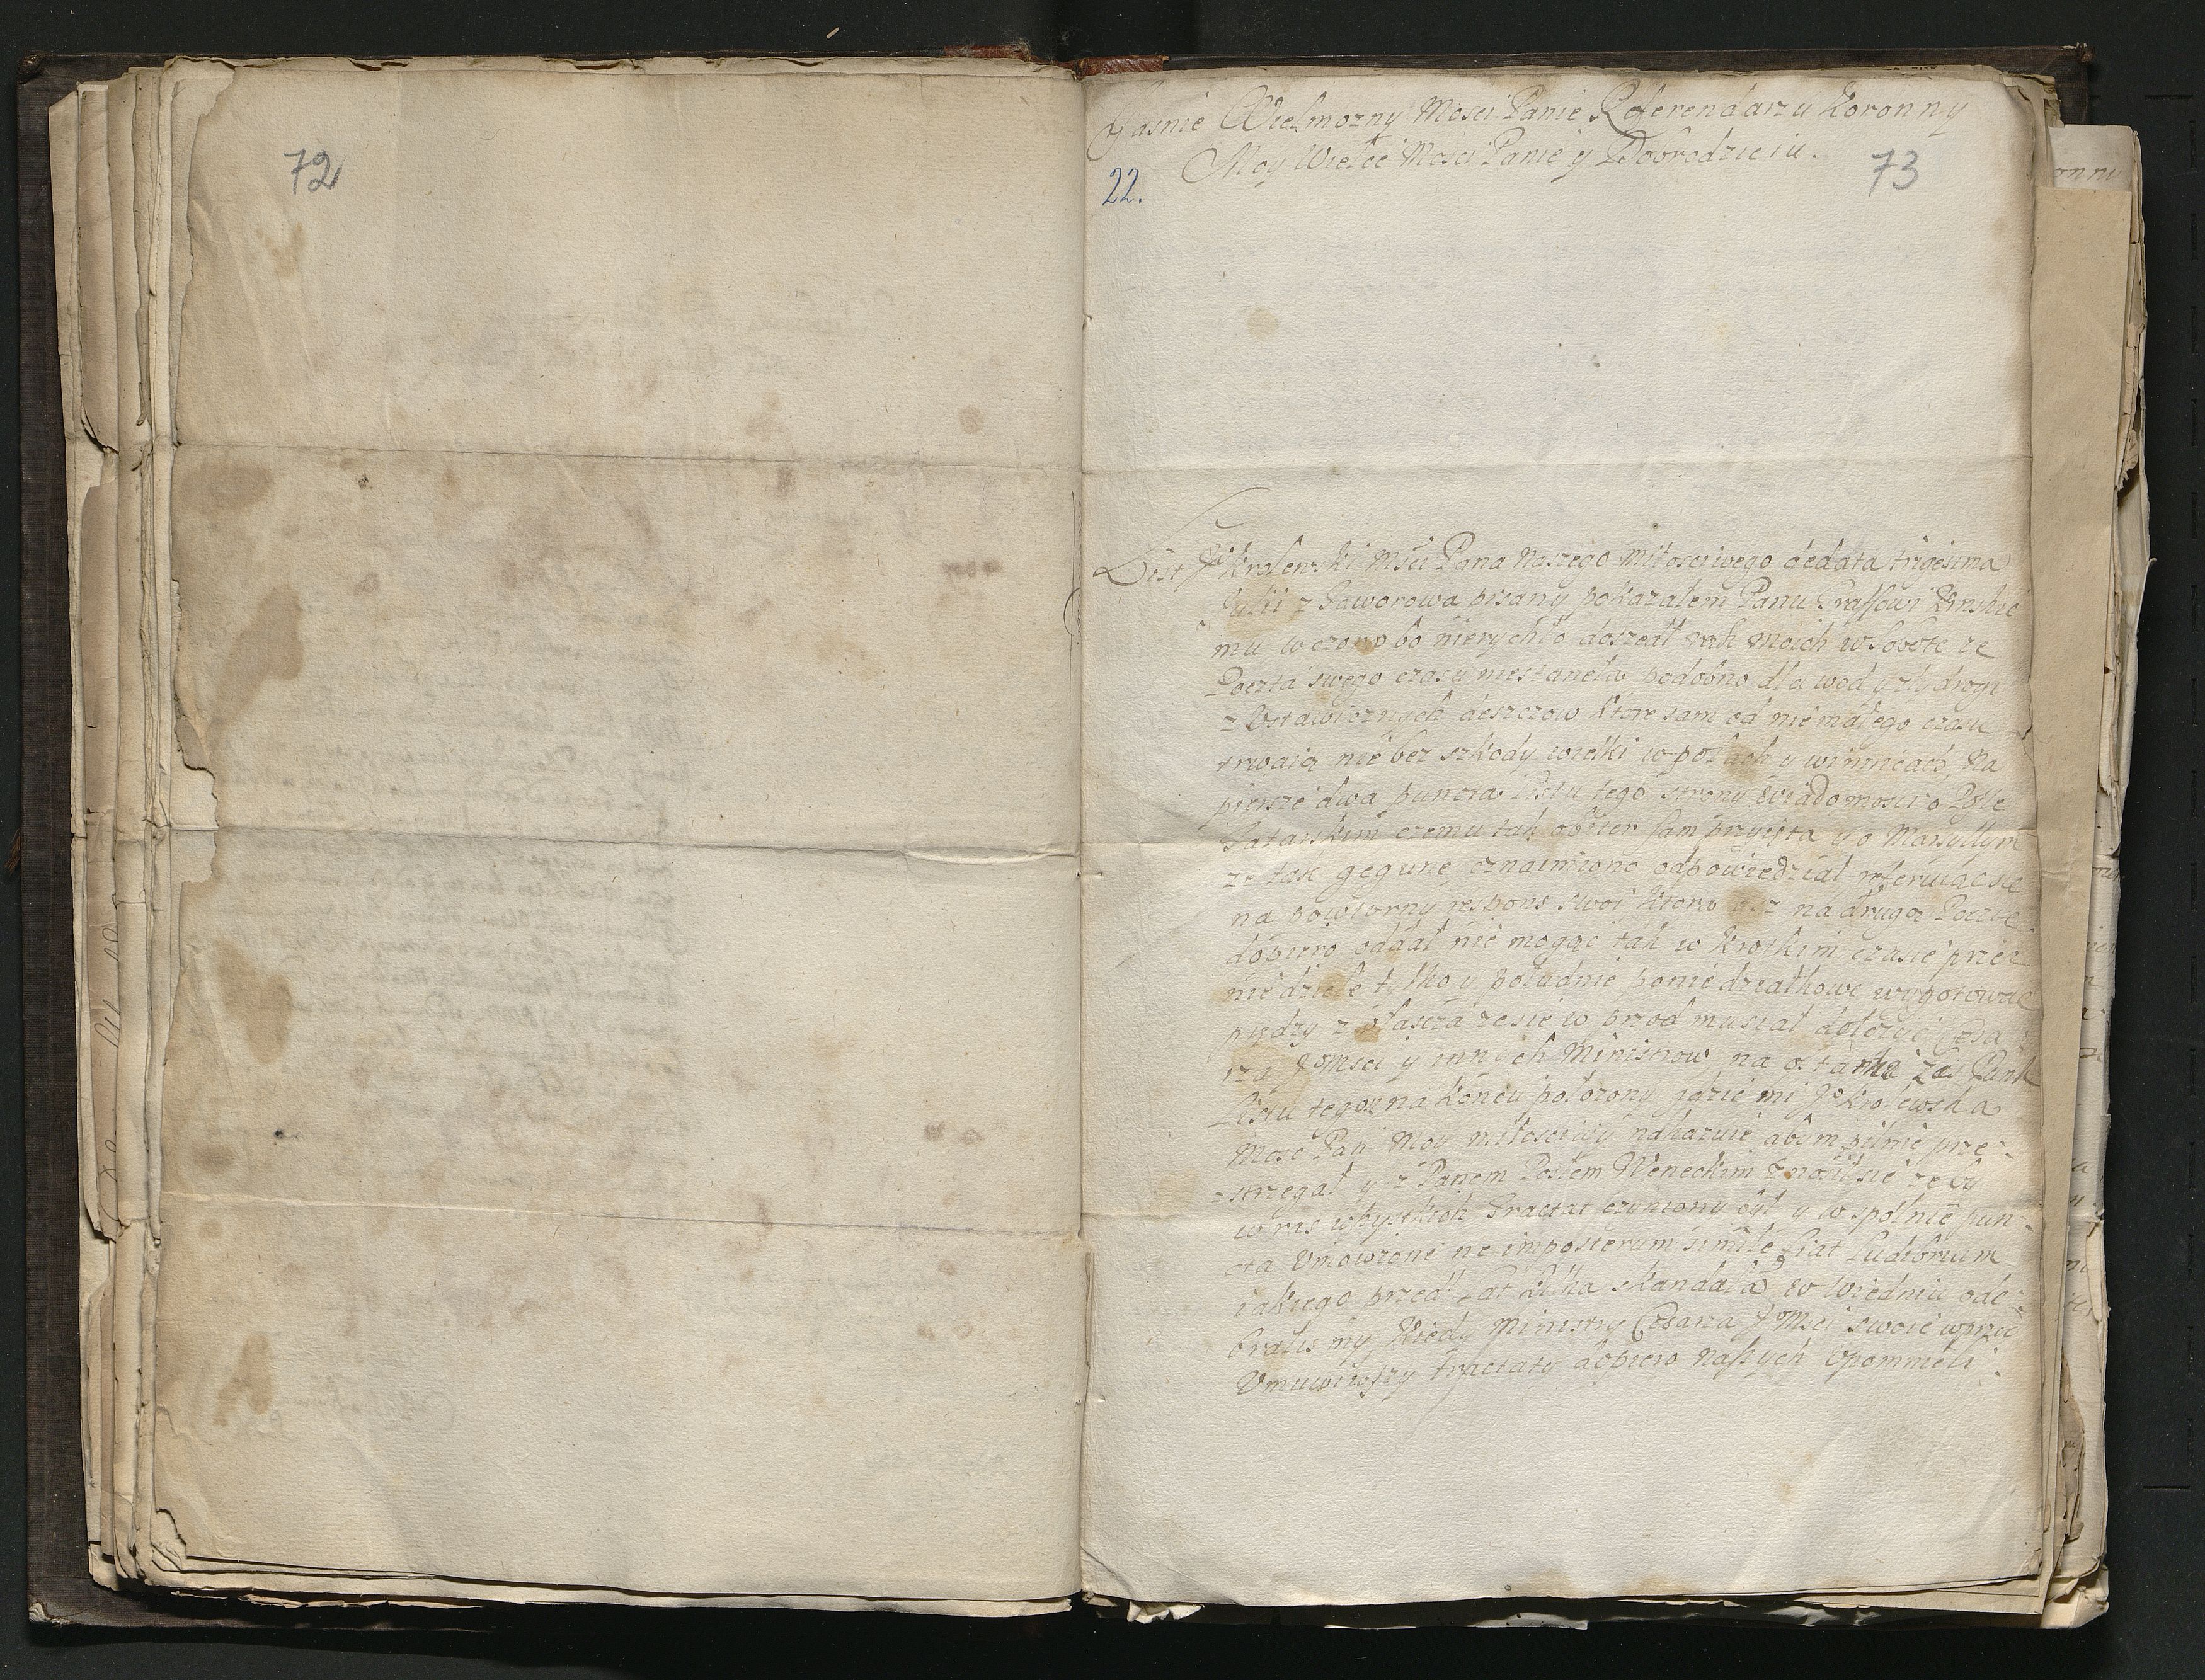 72
Jasnie Wielmozny Mosci Panie Referendarzu Koronny
Moy Wielce Mosci Panie y Dobrodzieiu.
22.
73
List Jº Krolewski Msci Pana Naszego Miłosciwego dedata trigesima
Julii z Jaworowa pisany pokazałem Panu Graffowi Kinskie
mu wczora bo nierychło doszedł rąk moich w Sobotę ze
Poczta swego czasu niestaneła podobno dla wod y zły drogi
z Ustawicznych deszczow ktore sam od niemałego czasu
trwaią nie bez szkody wielki w polach y winnicach, Na
piersze dwa puncta Listu tego strony Wiadomosci o Pośle
Tatarskim czemu tak obiter sam przyięta y o Marsyllym
ze tak ieiune oznaimiono odpowiedział referuiąc się
na powtorny respons swoi ktory asz na drugą Pocztę
dopiero oddał nie mogąc tak w krotkim czasie przez
niedziele tylko y południe poniedziałkowe wygotować
piędzy z Płascza ze się w przod musiał dołozyć Cesa
rza Jº Msci y innych Ministrow, na ostatni zas Punkt
Listu tegoz na koncu połozony gdzie mi Jº Krolewska
Mosc Pan Moy miłosciwy nakazuie abym pilnie prze-
strzegał y z Panem Posłem Weneckim znosił sie zeby
w ras wszystkich Tractat czyniony był y wspolnie pun-
cta Umowione ne imposterum simile fiat ludibrium
iakiego przed lat kilka skandala w Wiedniu ode-
bralismy kiedy Ministry Cesarza Jº Msci swoie wprzod
Umuwiwszy tractaty dopiero naszych Upomnieli